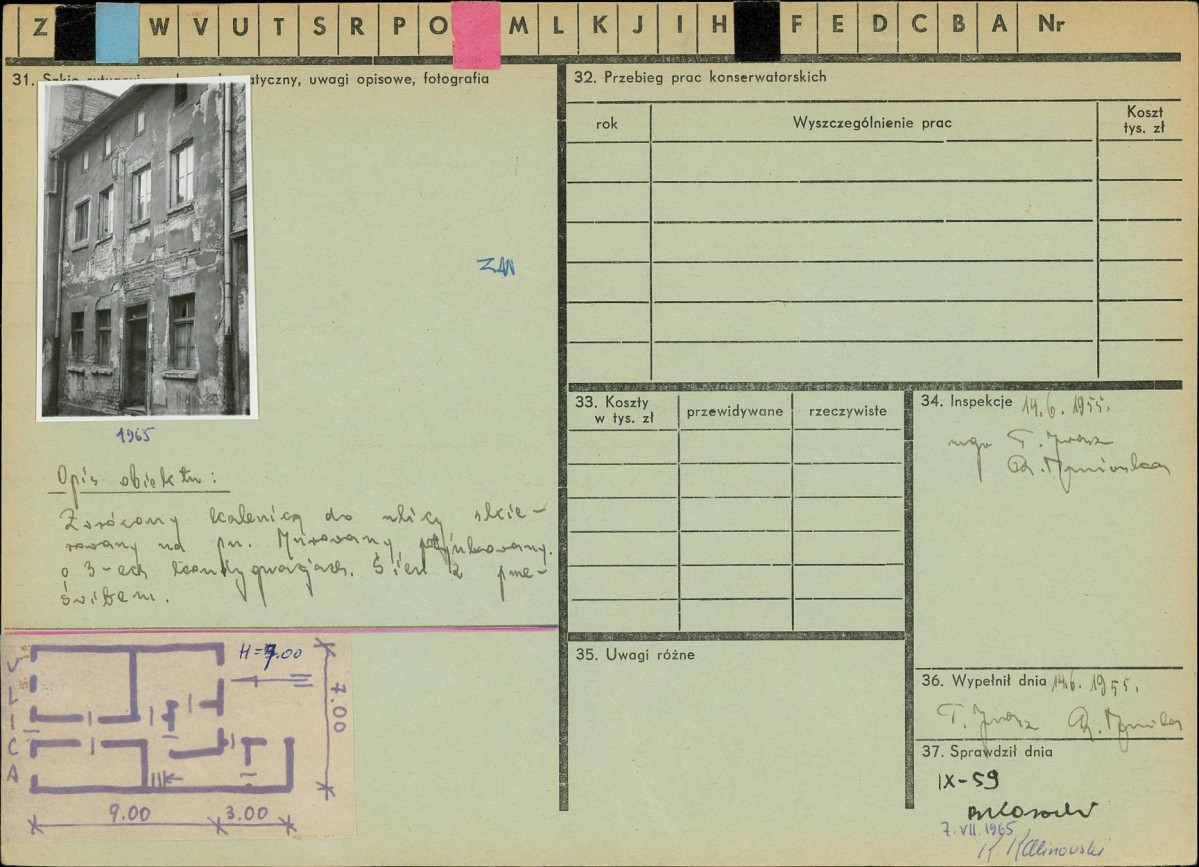 Z W V U T S R P O M L K J I H F E D C B A Nr
31. tyczny, uwagi opisowe, fotografia
1965
Opis obiektu:
Zwrócony kalenicą do ulicy skie-
rowany na pn. Murowany, otynkowany,
o 3-ech kondygnacjach. Sień z prze-
świtem.
ULICA
H=7.00
7.00
9.00 3.00
32. Przebieg prac konserwatorskich
rok Wyszczególnienie prac Koszt
tys. zł
33. Koszty
w tys. zł przewidywane rzeczywiste
34. Inspekcje 14.6. 1955.
mgr T.
35. Uwagi różne
36. Wypełnił dnia 14.6. 1955.
T.
37. Sprawdził dnia
IX-59
7. VII. 1965
K Kalinowski